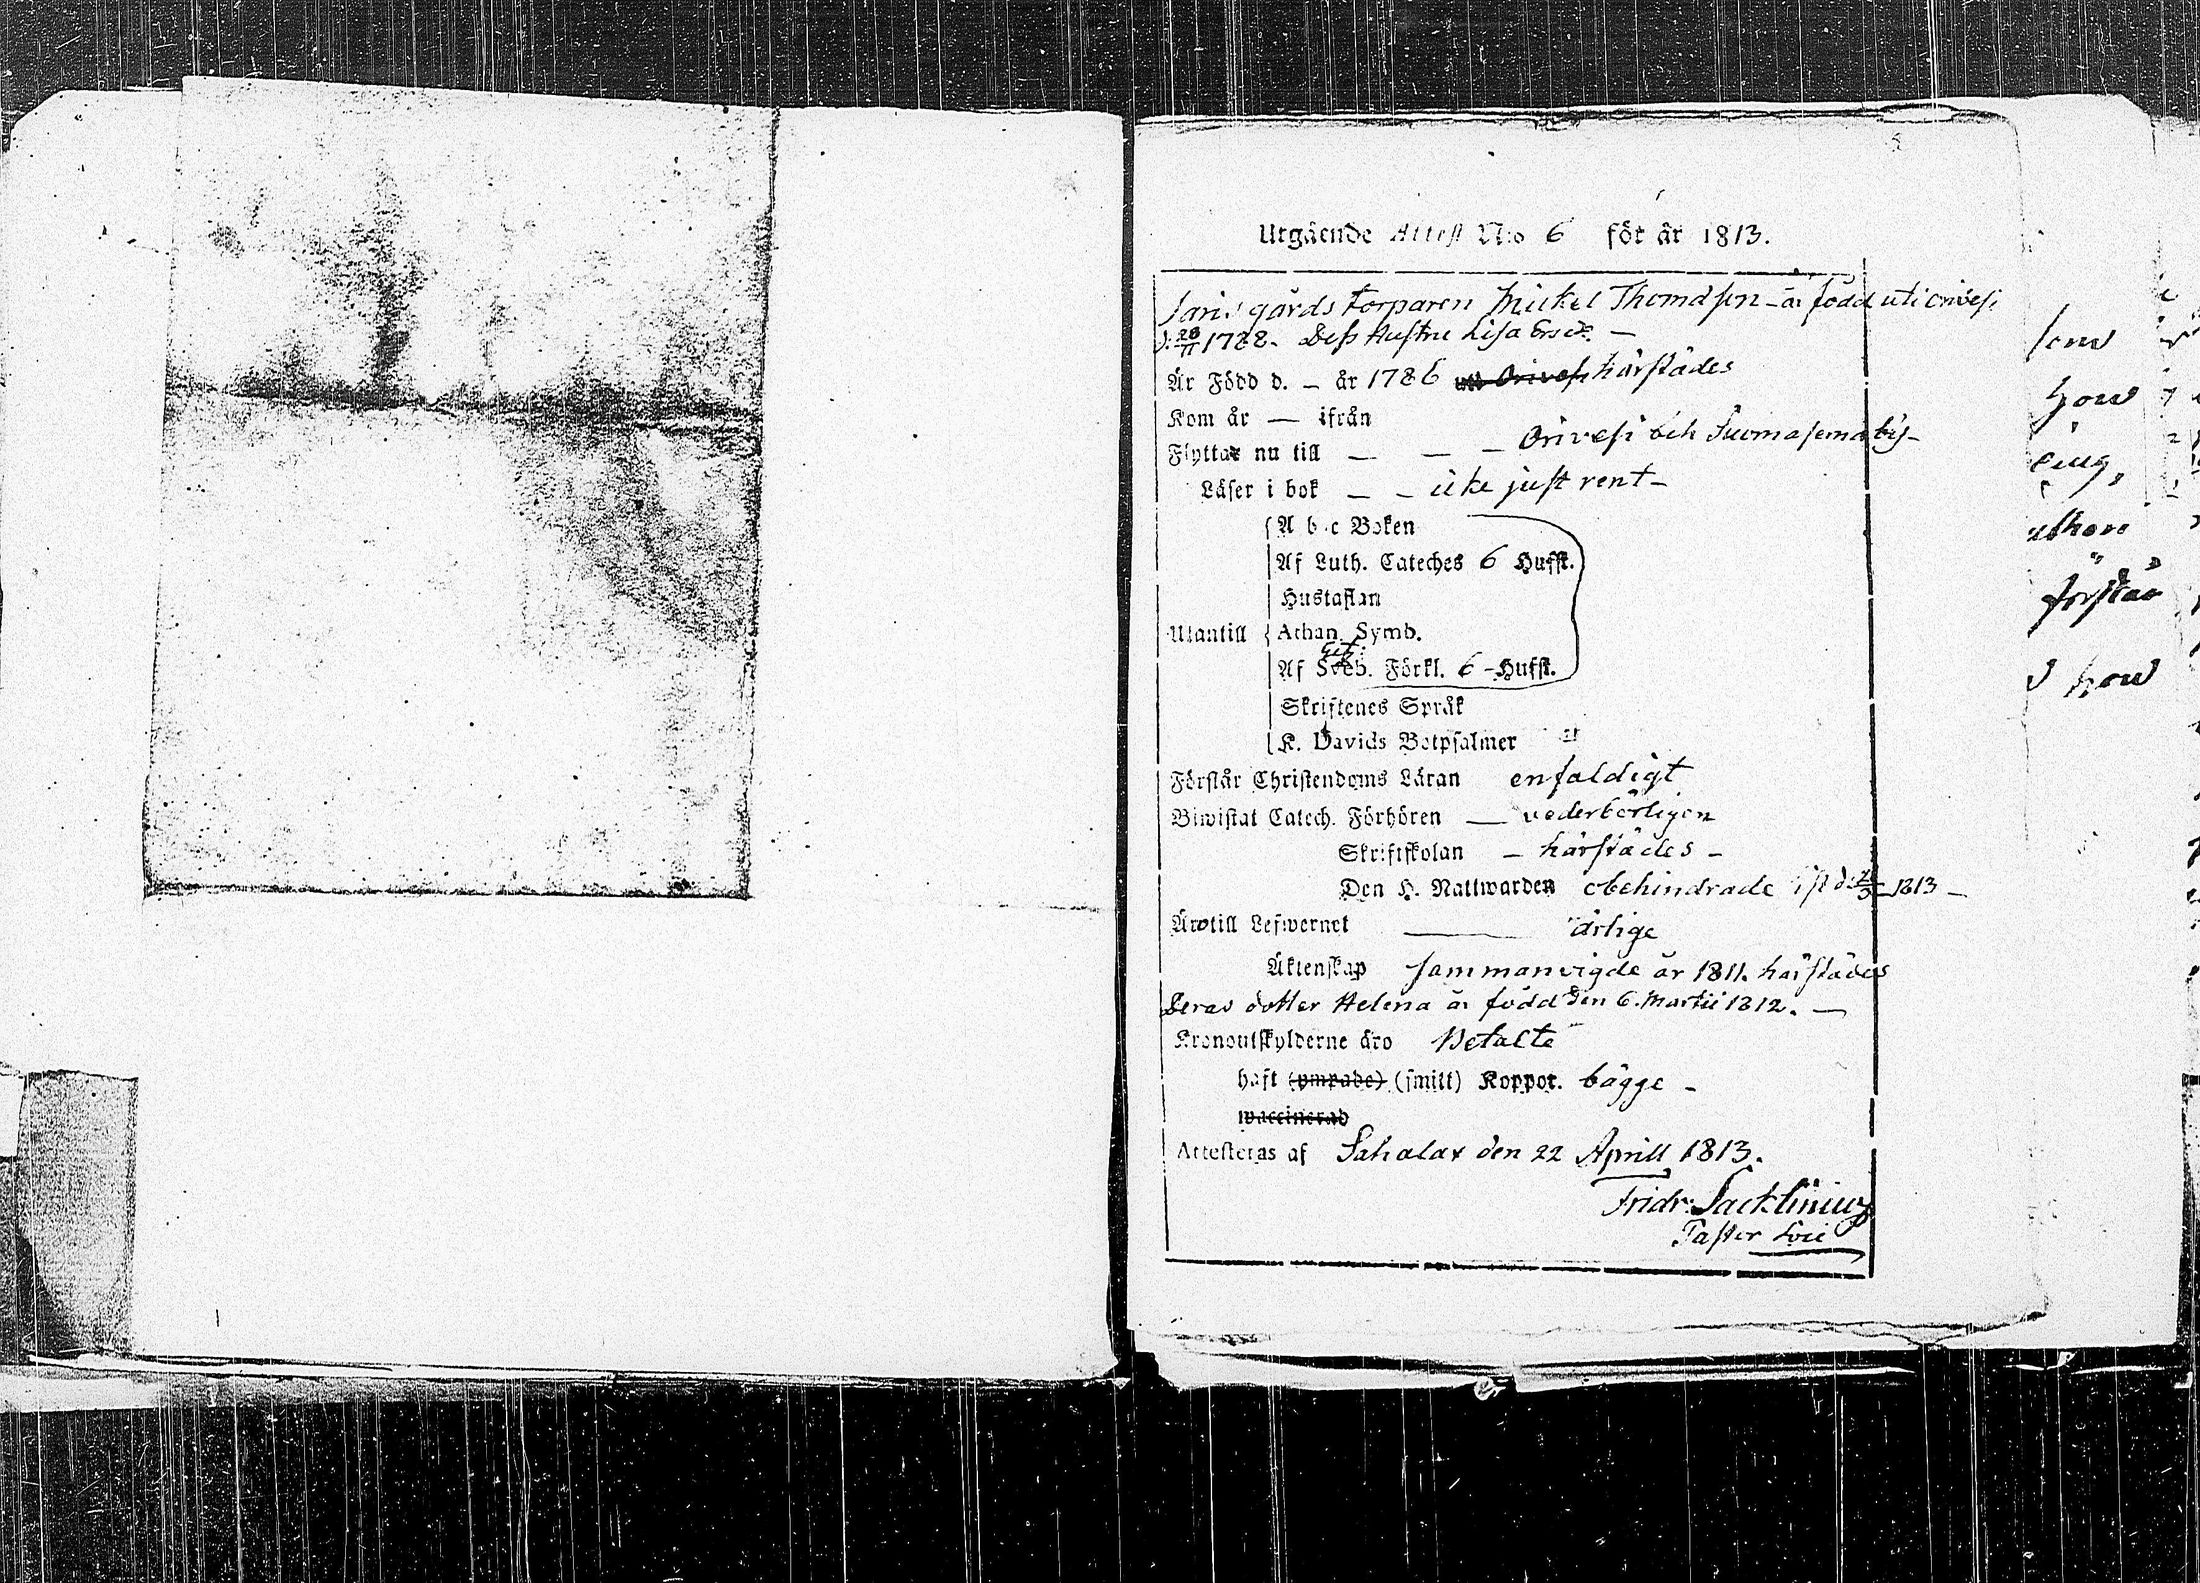 Utgående Attest N:o 6 för år 1813.
Saris gårds torparen Mickel Thomasson är född uti Orivesi
d: 28/11 1788. Dess Hustru Lisa
Är Född d. – år 1786 härstädes
Kom år — ifrån
Flyttar nu till — — – Orivesi och Suomasema by –
Läser i bok — – icke just rent –
A b c Boken
Af Luth. Cateches 6 Hufst.
Hustaflan
Utantill Athan. Symb.
Af Sveb. Förkl. 6 – Hufst.
Skriftenes Språk
K. Davids Botpsalmer
Förstår Christendoms Läran enfaldigt
Biwistat Catech. Förhören — vederbörligen
Skriftskolan – härstädes –
Den H. Nattwarden obehindrade sist d. 1813 –
Äro till Lefwernet — ärlige
Äktenskap sammanvigde år 1811. härstädes
Deras dotter Helena är född den 6. Martii 1812. —
Kronoutskylderne äro Betalte
haft (ympade) (smitt) Koppor. bägge –
waccinerad
Attesteras af Sahalax den 22 Aprill 1813.
Fridr: Sacklinius
Paster Loci
som
hon
förstår
hon